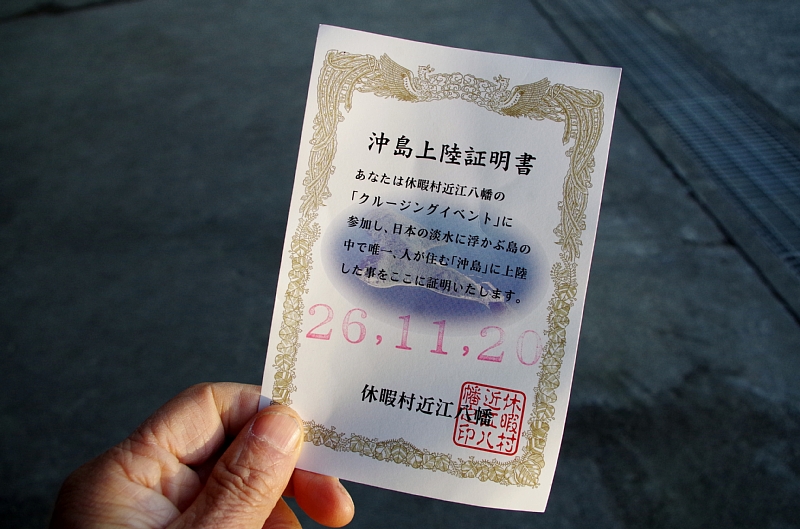 沖島上陸証明書
あなたは休暇村近江八幡の
「クルージングイベント」に
参加し、日本の淡水に浮かぶ島の
中で唯一、人が住む「沖島」に上陸
した事をここに証明いたします。
26,11,20
休暇村近江八幡
休暇村
近江八
幡之印